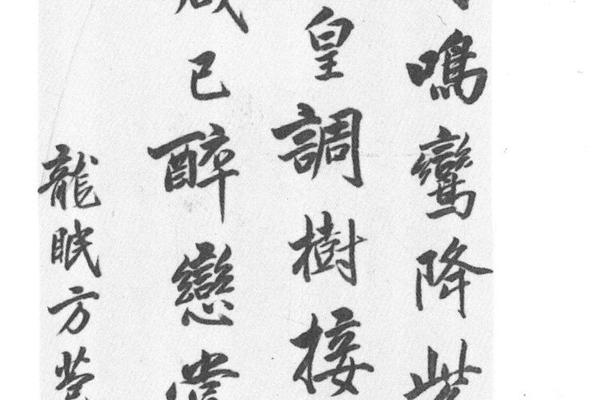 鳴鸞降
皇調樹接
已醉戀
龍眠方